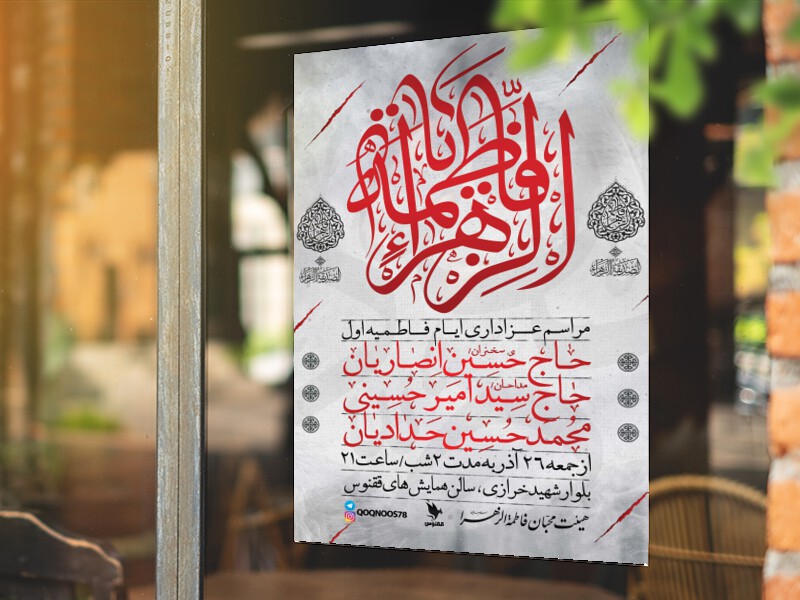 یا فاطمة الزهراء
الصدیقة الزهراء
الصدیقة الزهراء
مراسم عزاداری ایام فاطمیه اول
سخنران/
حاج حسین انصاریان
مداحان/
حاج سید امیر حسینی
محمد حسین حدادیان
از جمعه ۲۶ آذر به مدت ۲ شب/ ساعت ۲۱
بلوار شهید خرازی، سالن همایش های ققنوس
هیئت محبان فاطمة الزهرا
ققنوس
QOQNOOS78